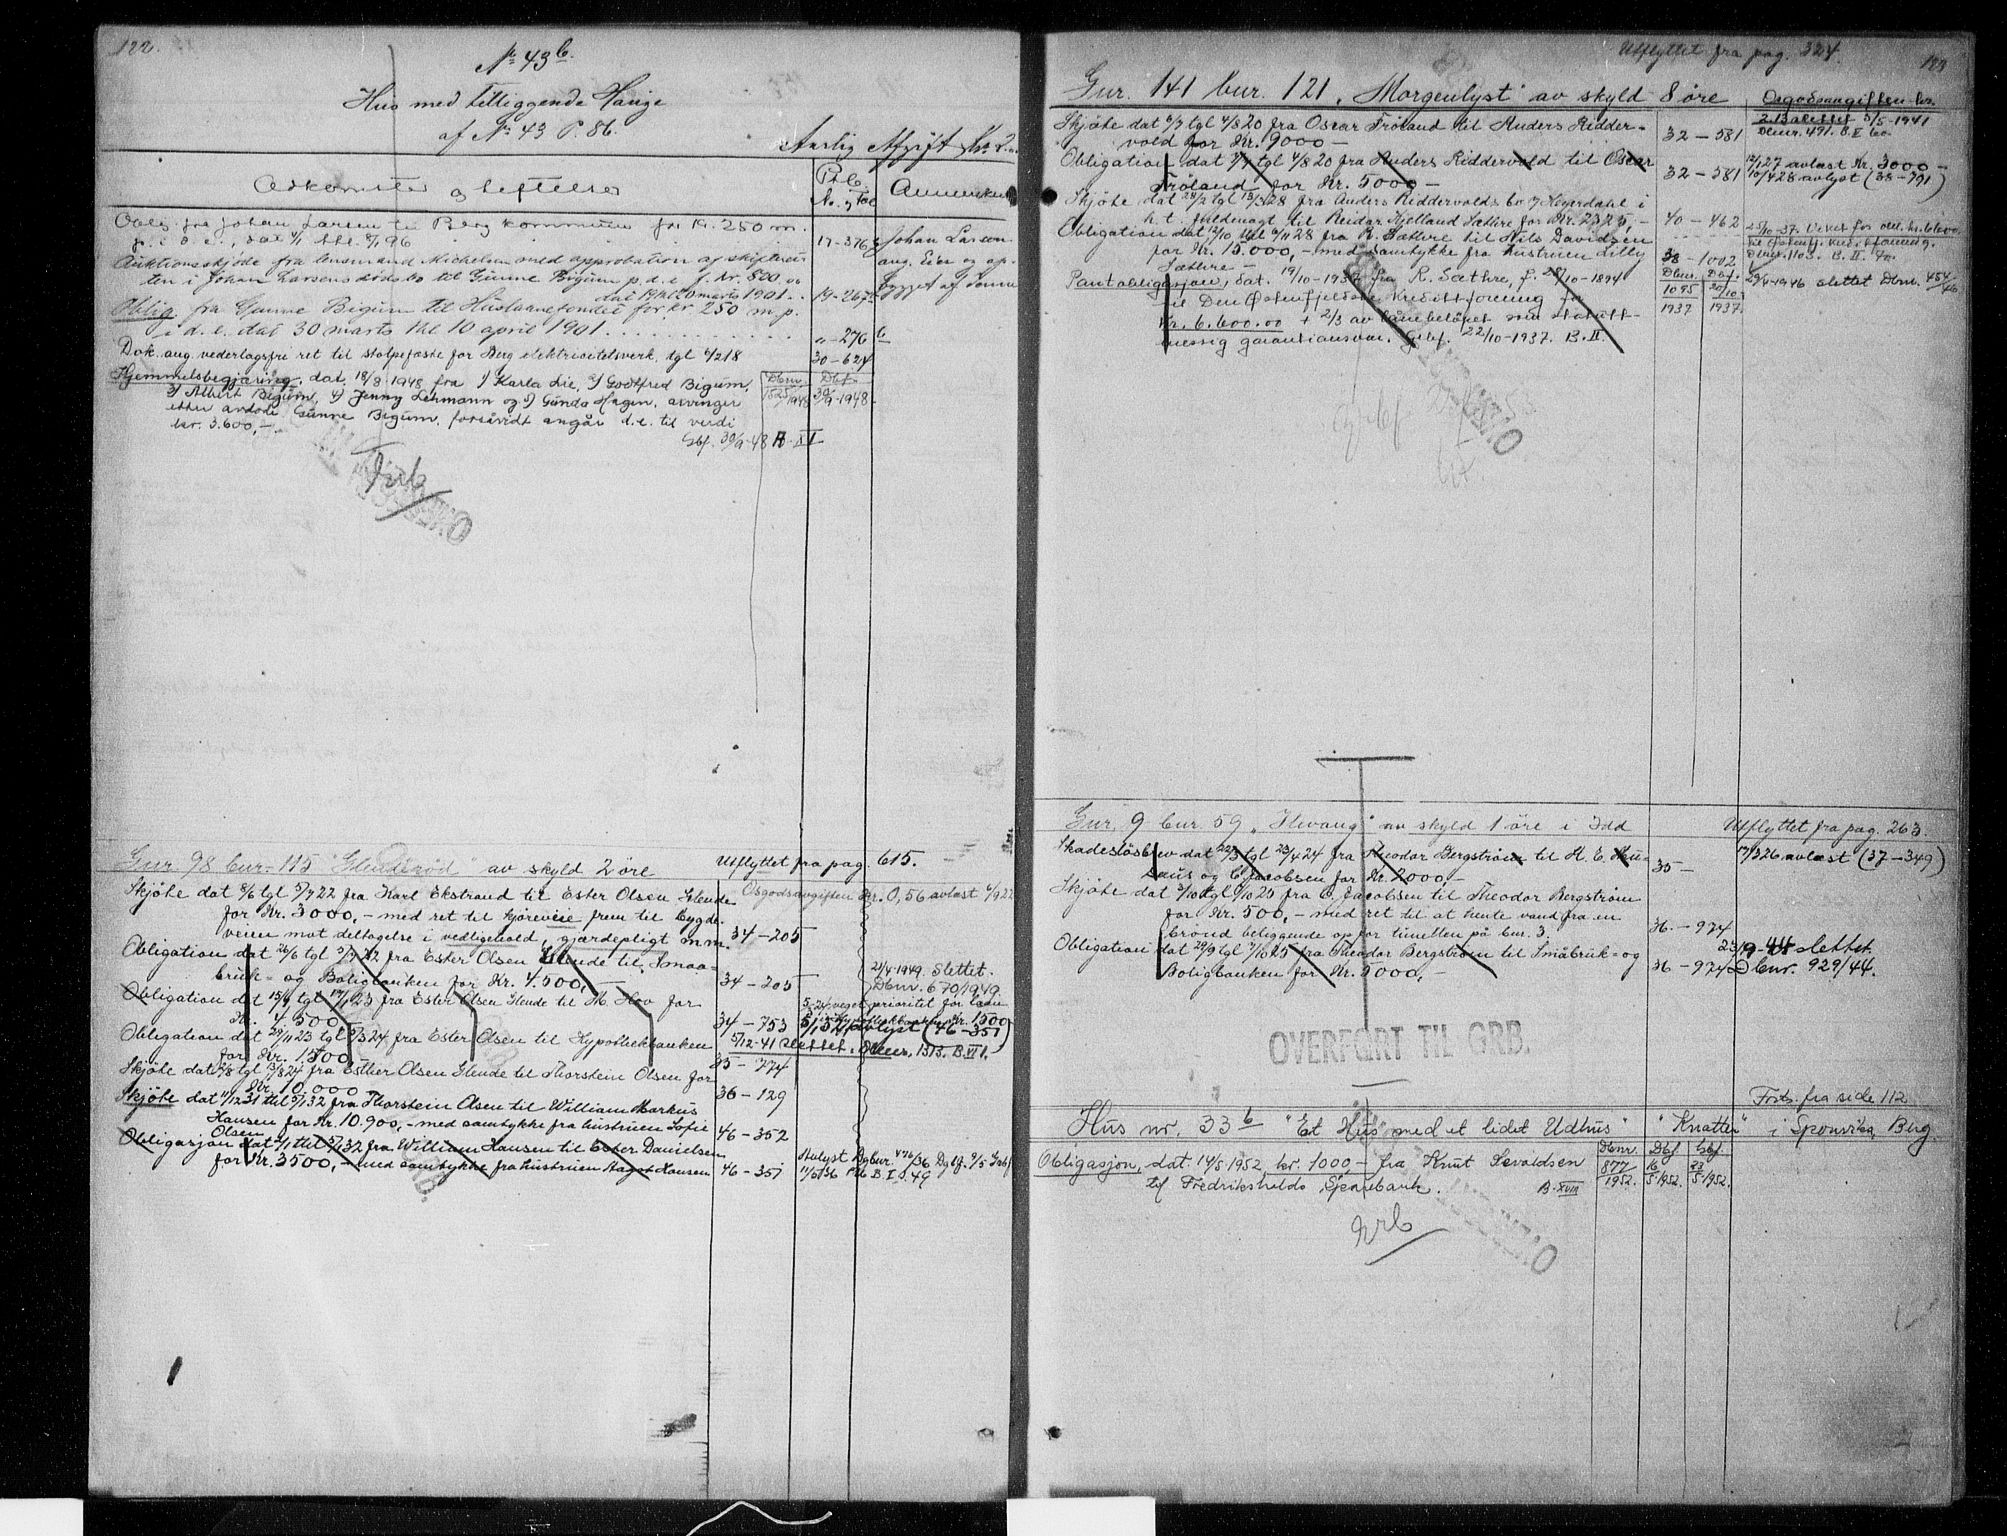 122.
No 43 b.
Hus med tilliggende Hauge
af No 43 P. 86.
Aarlig Afgift Kr. 2
Adkomster og heftelser
Ptb. No. og Fol
Anmerkn
Oblig. fra Johan Larsen til Berg kommune for kr. 250 m.
p. i d. e., dat 4/1 thl. 8/1 96
17-376b
Johan Larsen
Auktionsskjöde fra lensmand Michelsen med approbation af skifteret
ang. Eier og op-
ten i Johan Larsens dödsbo til Gunne Bigum p. d. e. f. kr. 800,00
bygget af denne
dat 19 thl 20 marts 1901.
19-267
Oblig. fra Gunne Bigum til Huslaanefondet for kr 250 m. p.
i d. e. dat 30 marts thl 10 april 1901
"-276 b
Dok. ang. vederlagsfri ret til stolpefæste for Berg elektricitetsverk, tgl 4/2 18
30-624
Hjemmelsbegjæring, dat. 18/8-1948 fra 1) Karla Lie, 2) Godtfred Bigum,
Dbnr. Dbf.
3) Albert Bigum, 4) Jenny Lehmann og 5) Gunda Hagen, arvinger
1825/1948 30/9-1948
etter avdöde Gunne Bigum, forsåvidt angår d.e. til verdi
kr. 3.600,-.
Gbf. 30/9-48 B-XI
Grb
Gnr 98 bnr. 115 "Glenderöd" av skyld 2 öre
Utflyttet fra pag. 615.
Skjöte dat 8/6 tgl 5/7 22 fra Karl Ekstrand til Ester Olsen Glende
Osgodsavgiften Kr. 0,56 avlöst 4/9 22
for Kr. 3000,- med ret til kjörevei frem til bygde-
veien mot deltagelse i vedligehold, gjerdepligt m m.
34-205
Obligation dat 26/6 tgl 5/7 22 fra Ester Olsen Glende til Smaa-
21/4-1949. Slettet.
bruk- og Boligbanken for Kr. 4.500,-
34-205
Dbnr. 670/1949.
Obligation dat 15/1 tgl 17/1 23 fra Ester Olsen Glende til M. Hov for
5-24 veget prioritet for laan
Kr. 4500 -
34-753
5/1 32 avlyst (46-351)
Obligation dat 29/11 23 tgl 5/3 24 fra Ester Olsen til Hypothekbanken
5/12-41 slettet. Dbnr. 1313. B. VI 1.
for Kr. 1500 -
35-774
Skjöte dat 2/8 tgl 5/8 24 fra Esther Olsen Glende til Thorstein Olsen for
Kr. 10.000 -
36-129
Skjöte dat 11/12 31 thl 5/1 32 fra Thorstein Olsen til William Markus
Hansen for Kr. 10.900,- med samtykke fra hustruen Sofie
Olsen
46-352
Obligasjon dat 2/1 thl 5/1 32 fra William Hansen til Ester Danielsen
Avlyst Dgbnr. 476/36 Dgbf. 9/5
for Kr. 3500,- med samtykke fra hustruen Aagot Hansen
46-351
11/5 36 Ptb B. I s. 49
Utflyttet fra pag. 324.
123
Gnr. 141 bnr. 121, "Morgenlyst" av skyld 8 öre
Osgodsavgiften kr.
2.13 slettet 3/5-1941
Skjöte dat 6/7 tgl 4/8 20 fra Oscar Fröland til Anders Ridder-
32-581
Dbnr. 491. B. V 60
vold for Kr. 9000 -
Obligation dat 3/7 tgl 4/8 20 fra Anders Riddervold til Oscar
32-581
12/1 27 avlöst Kr. 3000 -
Fröland for Kr. 5000 -
10/4 28 avlyst (38-791)
Skjöte dat 24/2 tgl 13/3 28 fra Anders Riddervolds bo v/ Heyerdahl i
h. t. fuldmagt til Reidar Kjelland Sæthre for Kr. 2325,-
40-462
Obligation dat 12/10 tgl 6/11 28 fra R. Sæthre til Nils Davidsen
25/10-37. Veket for obl. kr. 6600
for Kr. 15.000,- med samtykke fra hustruen Lilly
til Østenfj. kred.forening.
Sæthre -
38-1002
Dbnr. 1103. B. II. 70.
Pantobligasjon, dat. 19/10-1937 fra R. Sæthre, f. 28/10-1894
Dbnr. Dbf.
29/4-1946 slettet Dbnr. 454/46
til Den Østenfjeldske Kreditforening for
1095/1937 20/10 1937.
Kr. 6.600.00 + 2/3 av lånebelöpet som statutt-
messig garantiansvar. Gebf. 22/10-1937. B. II.
Gnr. 9 bnr. 59 "Ilevang" av skyld 1 öre i Idd
Utflyttet fra pag. 263.
Skadeslösbrev dat 22/3 tgl 23/4 24 fra Theodor Bergström til H. C. Hu-
35-
17/3 26 avlöst (37-349)
saus og C. Jacobsen for Kr. 2000,-
Skjöte dat 3/10 tgl 7/10 25 fra C. Jacobsen til Theodor Bergström
for Kr. 500,- med ret til at hente vand fra en
brönd beliggende op for tunellen på bnr. 3.
36-974
Obligation dat 29/9 tgl 7/10 25 fra Theodor Bergström til Småbruk- og
23/9-44 slettet
Boligbanken for Kr. 3000,-
36-974
Dbnr. 929/44.
OVERFØRT TIL GRB.
Forts. fra side 112
Hus nr. 33 b "Et Hus" med et lidet Udhus" "Knatten" i Sponvika, Berg.
Dbnr. Dbf. Gbf.
Obligasjon, dat. 14/5 1952, kr. 1000- fra Knut Sevaldsen
877/1952. 16/5-1952. 23/5-1952.
til Fredrikshalds Sparebank.
B. XVIII
Grb